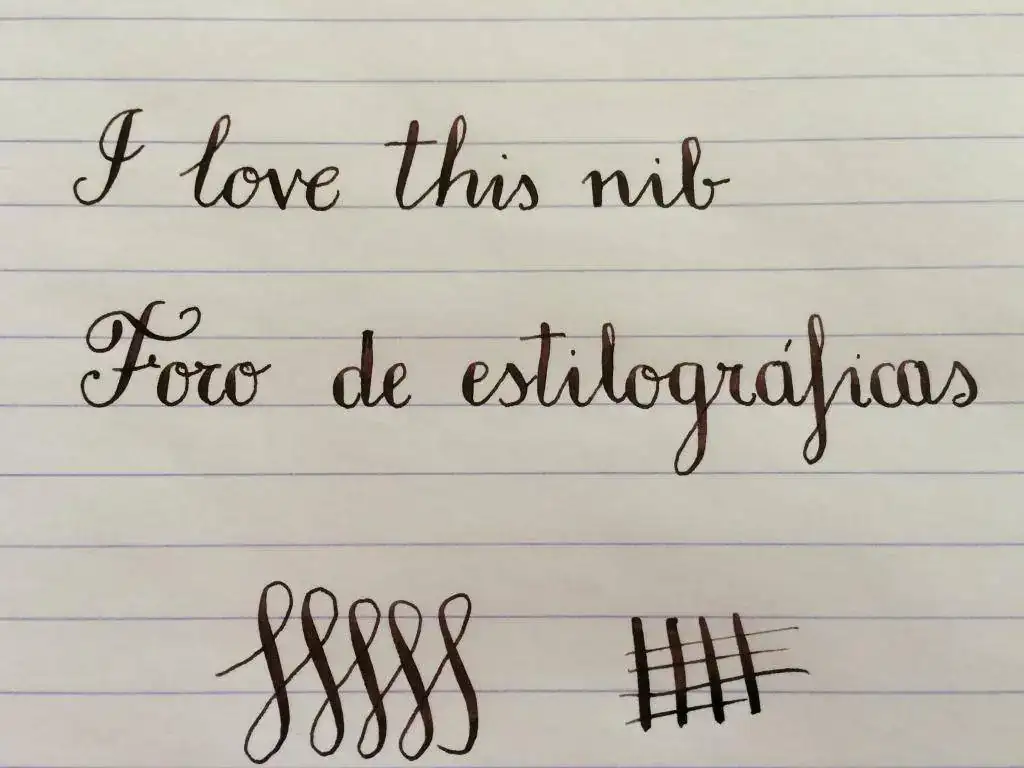 I love this nib
Foro de estilográficas